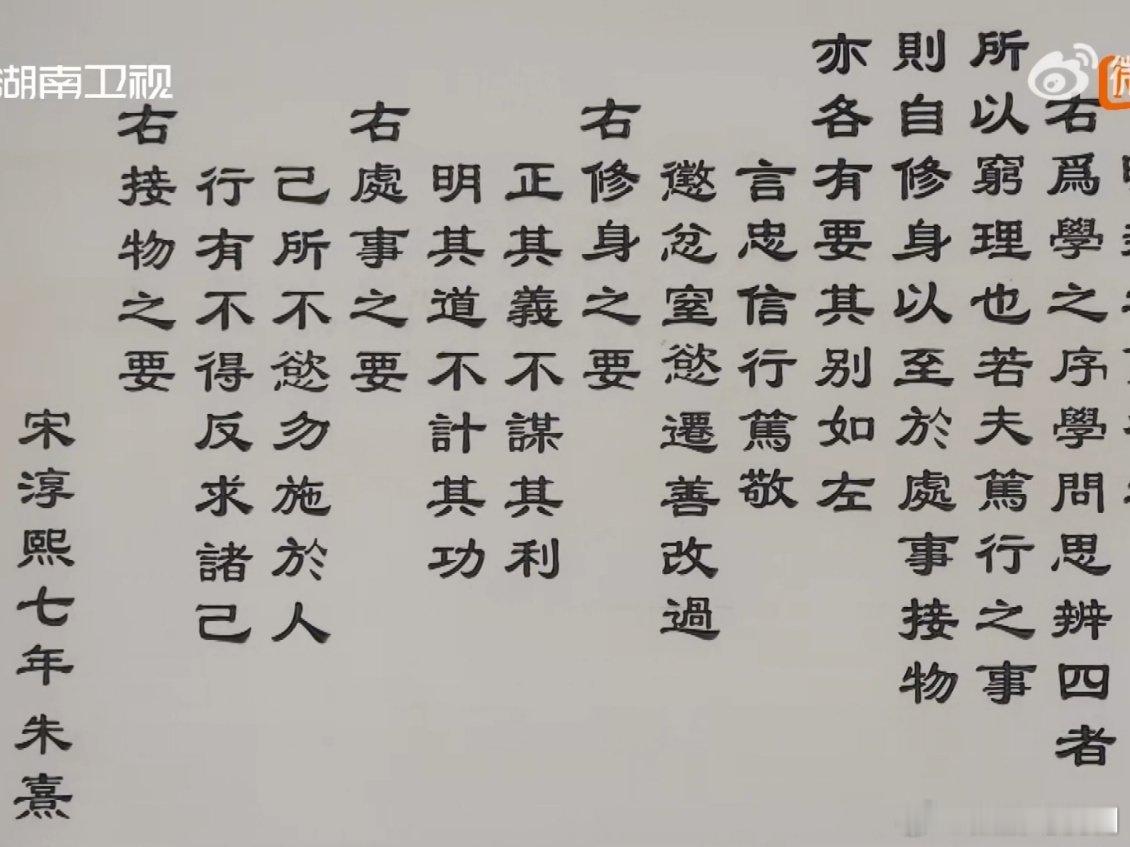 湖南卫视
右爲學之序學問思辨四者
所以窮理也若夫篤行之事
則自修身以至於處事接物
亦各有要其别如左
言忠信行篤敬
懲忿窒慾遷善改過
右修身之要
正其義不謀其利
明其道不計其功
右處事之要
己所不慾勿施於人
行有不得反求諸己
右接物之要
宋淳熙七年 朱熹